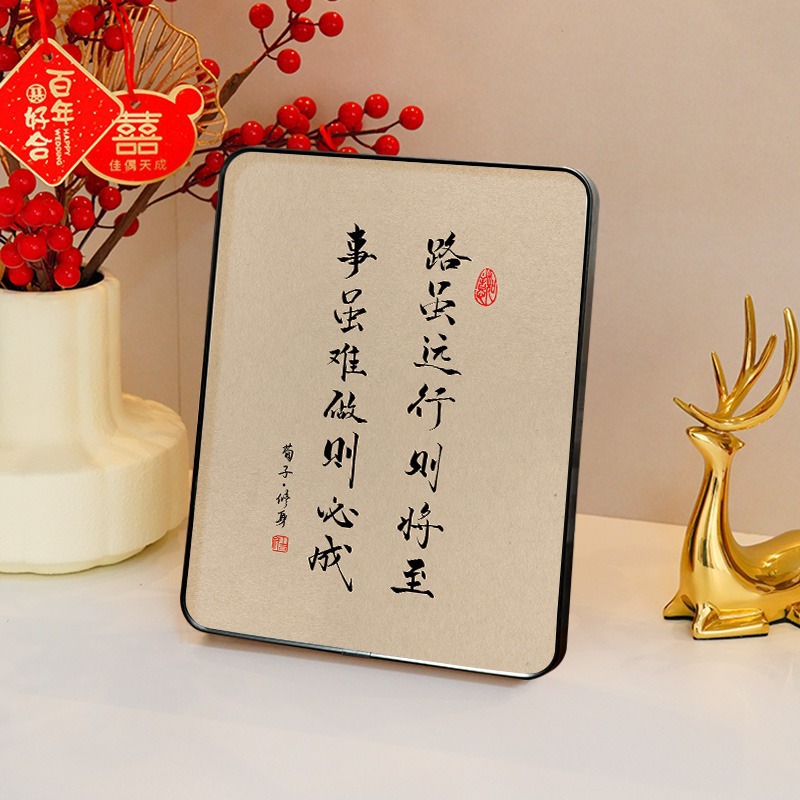 路虽远行则将至
事虽难做则必成
荀子·修身
百年好合
HAPPY WEDDING
囍
佳偶天成